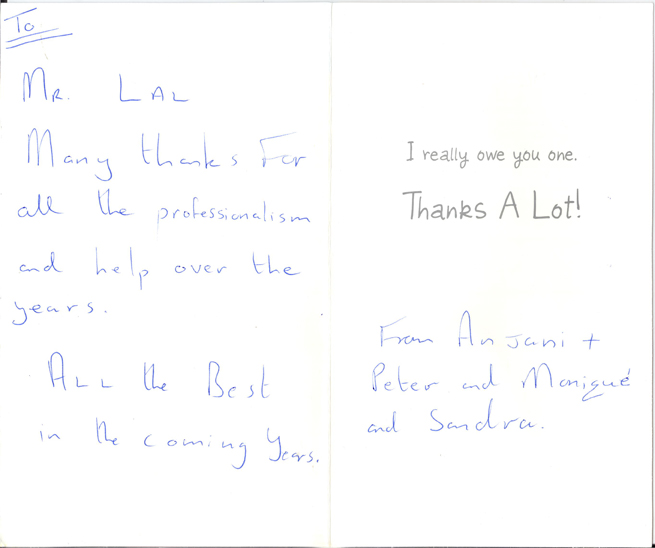 To
Mr. Lal
Many thanks For
all the professionalism
and help over the
years.
All the Best
in the coming Years.
I really owe you one.
Thanks A Lot!
From Anjani +
Peter and Moniqué
and Sandra.